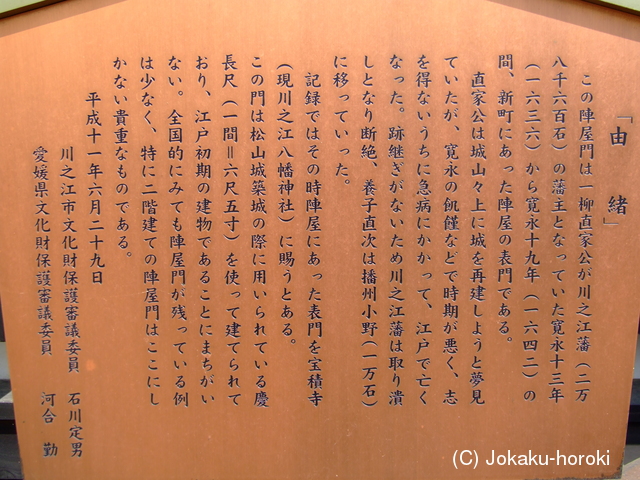 「由緒」
この陣屋門は一柳直家公が川之江藩（二万
八千六百石）の藩主となっていた寛永十三年
（一六三六）から寛永十九年（一六四二）の
間、新町にあった陣屋の表門である。
直家公は城山々上に城を再建しようと夢見
ていたが、寛永の飢饉などで時期が悪く、志
を得ないうちに急病にかかって、江戸で亡く
なった。跡継ぎがないため川之江藩は取り潰
しとなり断絶、養子直次は播州小野（一万石）
に移っていった。
記録ではその時陣屋にあった表門を宝積寺
（現川之江八幡神社）に賜うとある。
この門は松山城築城の際に用いられている慶
長尺（一間＝六尺五寸）を使って建てられて
おり、江戸初期の建物であることにまちがい
ない。全国的にみても陣屋門が残っている例
は少なく、特に二階建ての陣屋門はここにし
かない貴重なものである。
平成十一年六月二十九日
川之江市文化財保護審議委員　石川定男
愛媛県文化財保護審議委員　河合　勤
(C) Jokaku-horoki